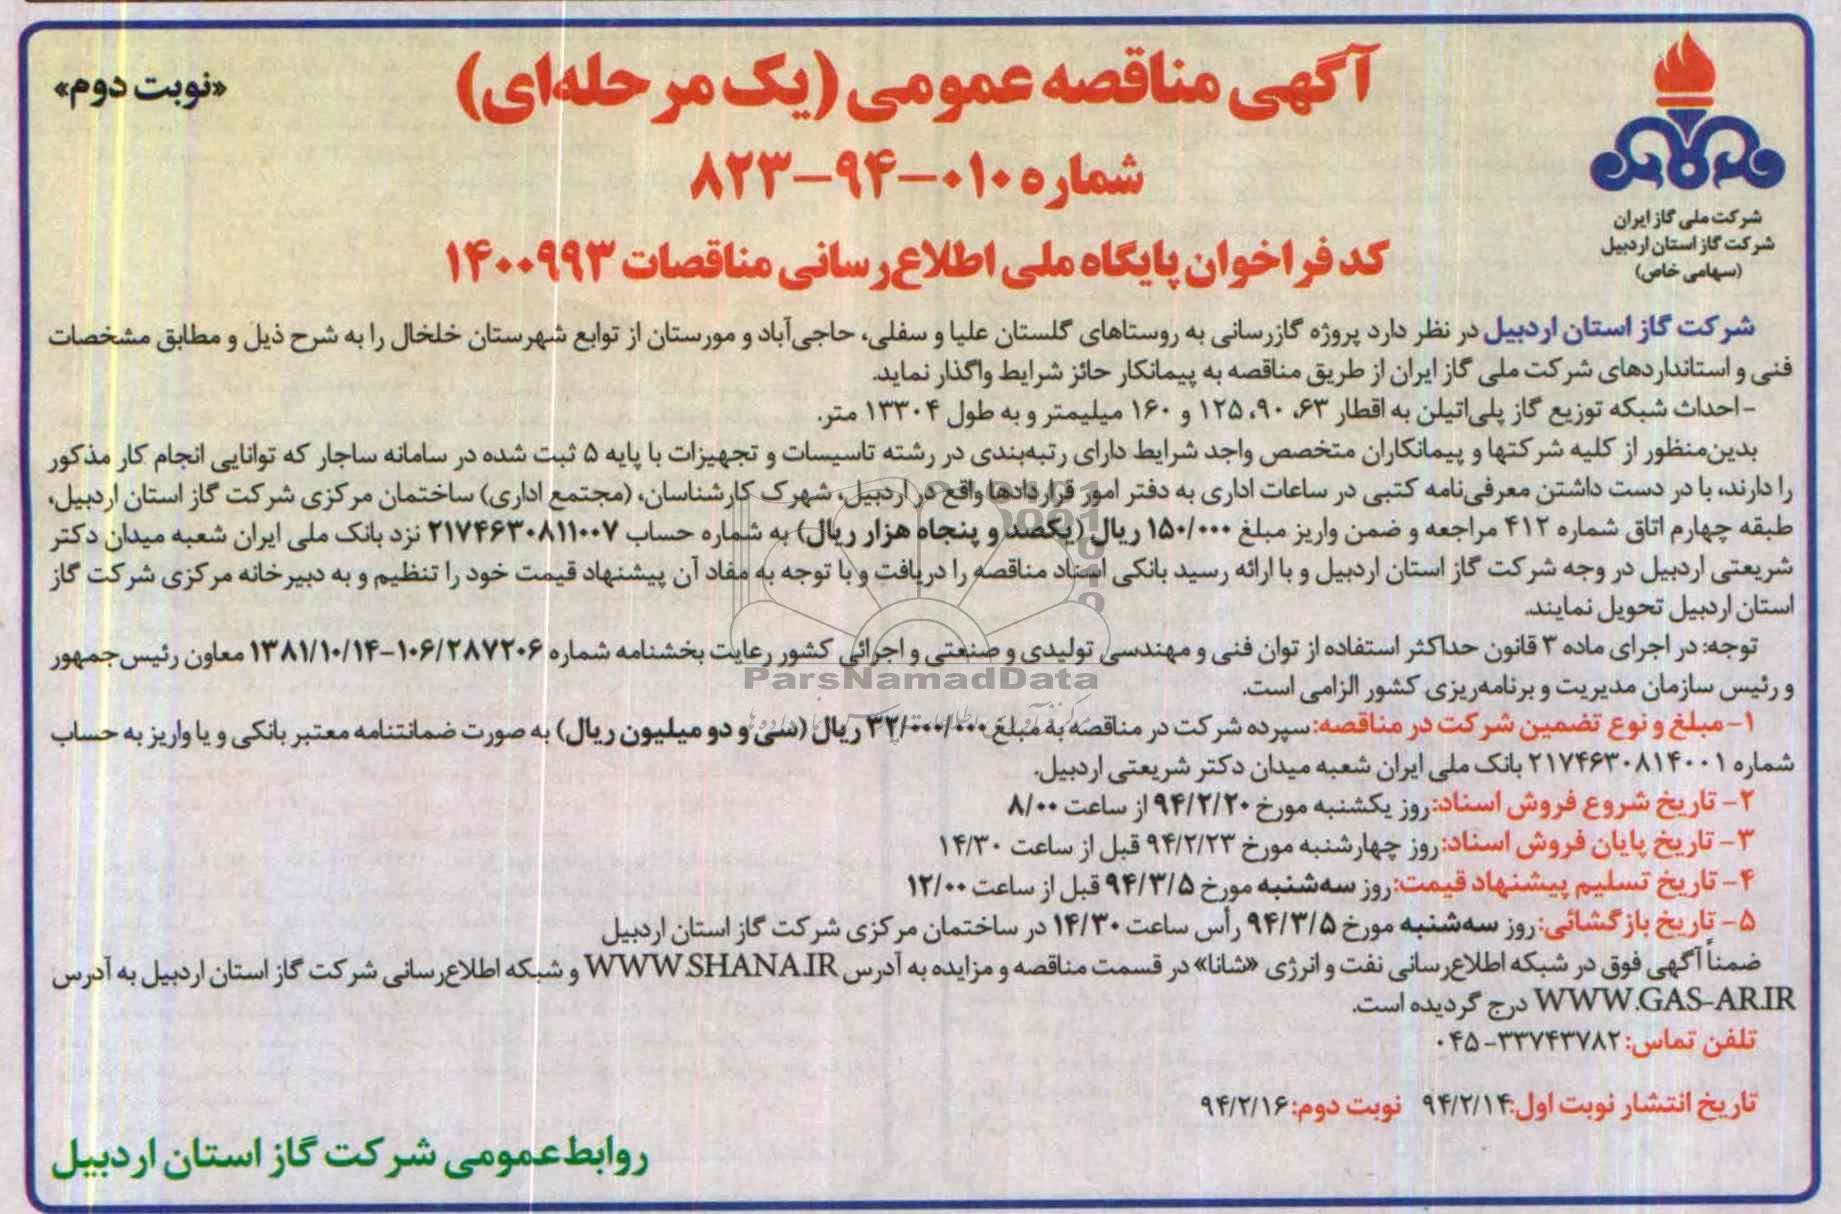 آگهی مناقصه عمومی (یک مرحله‌ای)
«نوبت دوم»
شماره ۰۱۰-۹۴-۸۲۳
کد فراخوان پایگاه ملی اطلاع‌رسانی مناقصات ۱۴۰۰۹۹۳
شرکت ملی گاز ایران
شرکت گاز استان اردبیل
(سهامی خاص)
شرکت گاز استان اردبیل در نظر دارد پروژه گازرسانی به روستاهای گلستان علیا و سفلی، حاجی‌آباد و مورستان از توابع شهرستان خلخال را به شرح ذیل و مطابق مشخصات
فنی و استانداردهای شرکت ملی گاز ایران از طریق مناقصه به پیمانکار حائز شرایط واگذار نماید.
- احداث شبکه توزیع گاز پلی‌اتیلن به اقطار ۶۳، ۹۰، ۱۲۵ و ۱۶۰ میلیمتر و به طول ۱۳۳۰۴ متر.
بدین‌منظور از کلیه شرکتها و پیمانکاران متخصص واجد شرایط دارای رتبه‌بندی در رشته تاسیسات و تجهیزات با پایه ۵ ثبت شده در سامانه ساجار که توانایی انجام کار مذکور
را دارند، با در دست داشتن معرفی‌نامه کتبی در ساعات اداری به دفتر امور قراردادها واقع در اردبیل، شهرک کارشناسان، (مجتمع اداری) ساختمان مرکزی شرکت گاز استان اردبیل،
طبقه چهارم اتاق شماره ۴۱۲ مراجعه و ضمن واریز مبلغ ۱۵۰/۰۰۰ ریال (یکصد و پنجاه هزار ریال) به شماره حساب ۲۱۷۴۶۳۰۸۱۱۰۰۷ نزد بانک ملی ایران شعبه میدان دکتر
شریعتی اردبیل در وجه شرکت گاز استان اردبیل و با ارائه رسید بانکی اسناد مناقصه را دریافت و با توجه به مفاد آن پیشنهاد قیمت خود را تنظیم و به دبیرخانه مرکزی شرکت گاز
استان اردبیل تحویل نمایند.
توجه: در اجرای ماده ۳ قانون حداکثر استفاده از توان فنی و مهندسی تولیدی و صنعتی و اجرائی کشور رعایت بخشنامه شماره ۱۰۶/۲۸۷۲۰۶-۱۳۸۱/۱۰/۱۴ معاون رئیس‌جمهور
و رئیس سازمان مدیریت و برنامه‌ریزی کشور الزامی است.
ParsNamadData
۱- مبلغ و نوع تضمین شرکت در مناقصه: سپرده شرکت در مناقصه به مبلغ ۳۲/۰۰۰/۰۰۰ ریال (سی و دو میلیون ریال) به صورت ضمانتنامه معتبر بانکی و یا واریز به حساب
شماره ۲۱۷۴۶۳۰۸۱۴۰۰۱ بانک ملی ایران شعبه میدان دکتر شریعتی اردبیل.
۲- تاریخ شروع فروش اسناد: روز یکشنبه مورخ ۹۴/۲/۲۰ از ساعت ۸/۰۰
۳- تاریخ پایان فروش اسناد: روز چهارشنبه مورخ ۹۴/۲/۲۳ قبل از ساعت ۱۴/۳۰
۴- تاریخ تسلیم پیشنهاد قیمت: روز سه‌شنبه مورخ ۹۴/۳/۵ قبل از ساعت ۱۲/۰۰
۵- تاریخ بازگشائی: روز سه‌شنبه مورخ ۹۴/۳/۵ رأس ساعت ۱۴/۳۰ در ساختمان مرکزی شرکت گاز استان اردبیل
ضمناً آگهی فوق در شبکه اطلاع‌رسانی نفت و انرژی «شانا» در قسمت مناقصه و مزایده به آدرس WWW.SHANA.IR و شبکه اطلاع‌رسانی شرکت گاز استان اردبیل به آدرس
WWW.GAS-AR.IR درج گردیده است.
تلفن تماس: ۳۳۷۴۳۷۸۲-۰۴۵
تاریخ انتشار نوبت اول: ۹۴/۲/۱۴ نوبت دوم: ۹۴/۲/۱۶
روابط عمومی شرکت گاز استان اردبیل